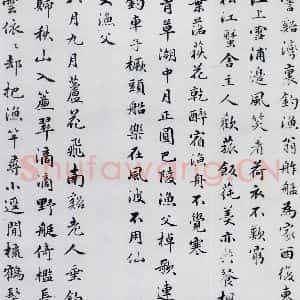 霅谿灣裏釣漁翁舴艋為家西復東
江上雪浦邊風笑著荷衣不歎窮
松江蟹舍主人歡菰飯蓴羹亦共餐楓
葉落荻花乾醉宿漁舟不覺寒
青草湖中月正圓巴陵漁父棹歌連
釣車子橛頭船樂在風波不用仙
又漁父
八月九月蘆花飛南谿老人垂釣
歸秋山入簾翠滴滴野艇倚檻
雲依依却把漁竿尋小逕閒梳鶴髮
Shufawang.CN